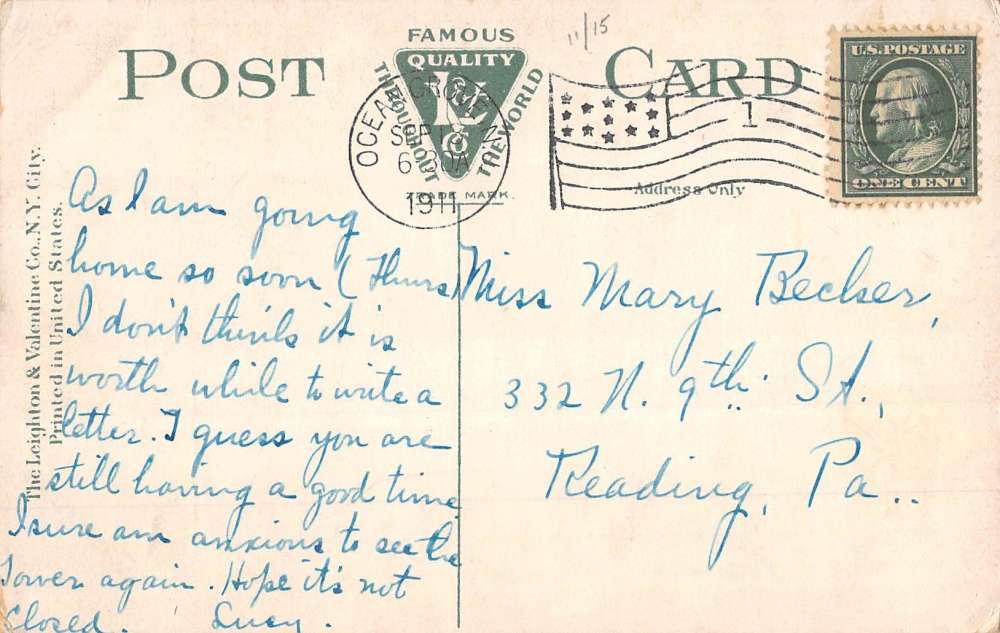 11/15
POST CARD
FAMOUS
QUALITY
THROUGHOUT THE WORLD
L&V
TRADE MARK.
OCEAN GROVE N
SEP
1911
1
U.S. POSTAGE
ONE CENT
Address Only
The Leighton & Valentine Co., N.Y. City.
Printed in United States.
As I am going
home so soon (Thurs)
I don't think it is
worth while to write a
letter. I guess you are
still having a good time
I sure am anxious to see the
Tower again. Hope it's not
closed. Lucy.
Miss Mary Becker,
332 N. 9th. St.,
Reading, Pa..